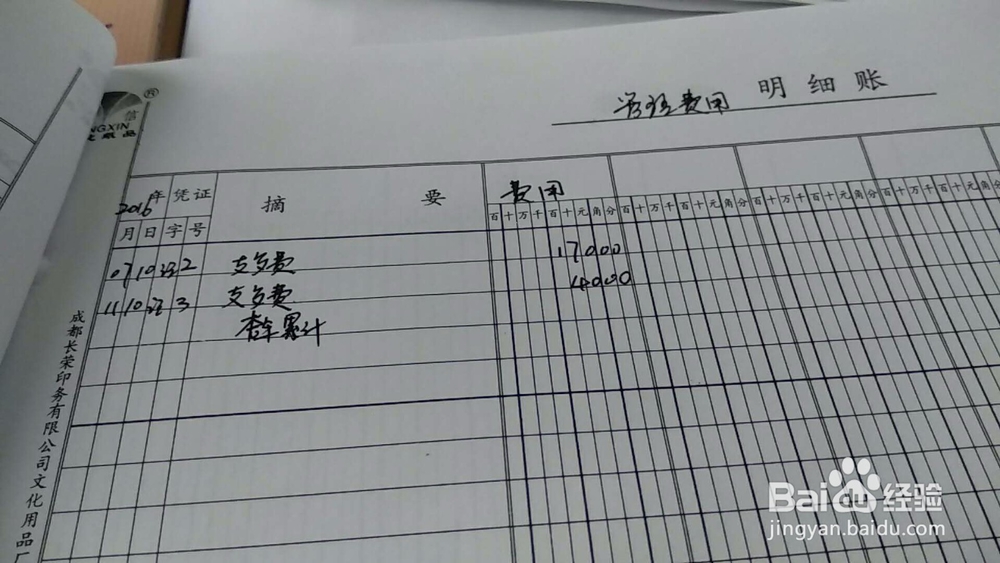 管理费用 明细账
NGXIN
®
2016年 凭证 摘要 费用
月 日 字 号 百十万千百十元角分 百十万千百十元角分 百十万千百十元角分 百十万千百十元角分
07 10 记 2 支 费 17000
11 10 记 3 支 费 4000
本年累计
成都长荣印务有限公司文化用品厂
Baidu 经验
jingyan.baidu.com